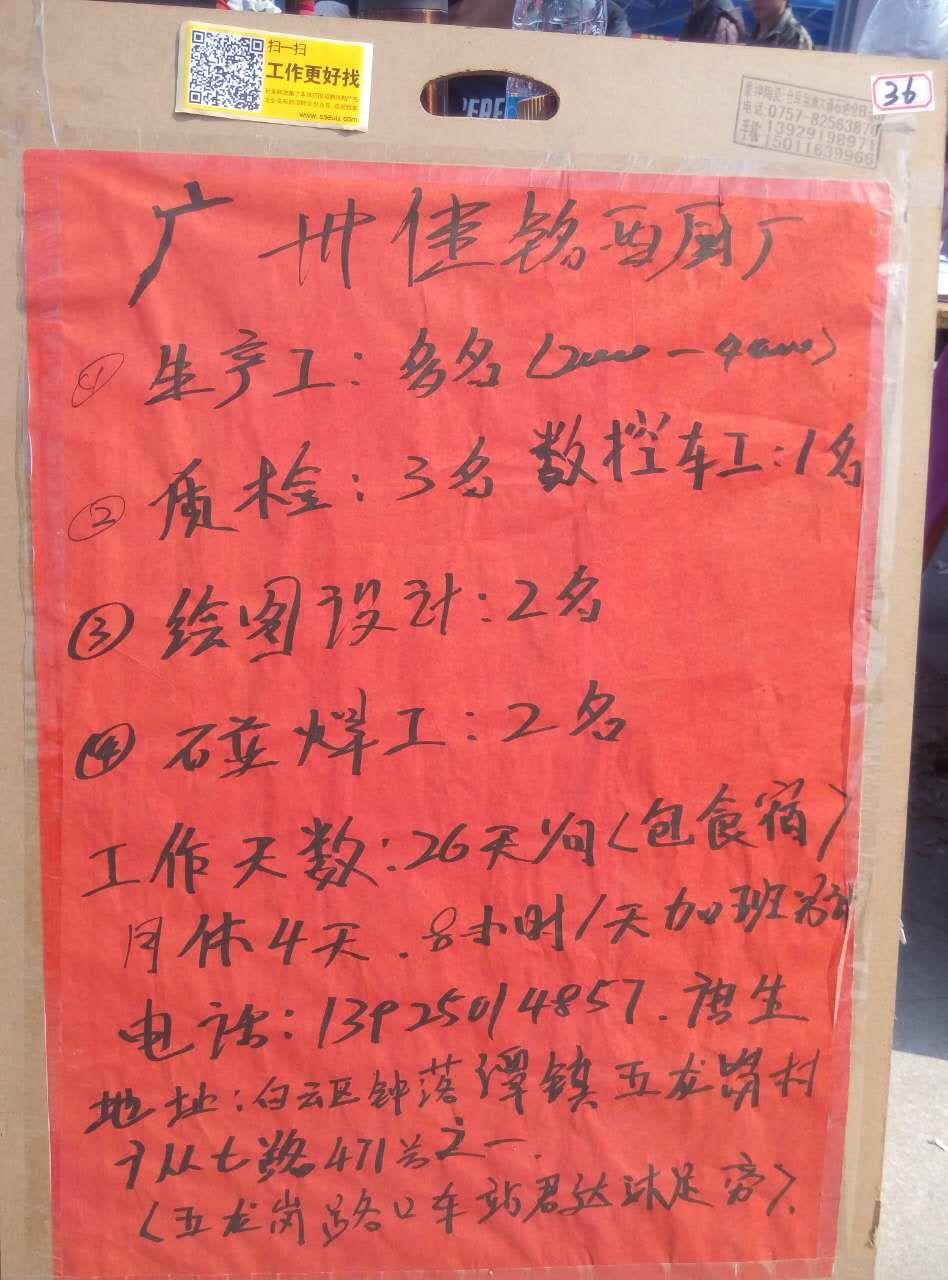 扫一扫
工作更好找
www.saeuu.com
36
电话:0757-82563876
13929198971
15011639966
广州健铭西厨厂
① 生产工:多名(2000-4000)
② 质检:3名 数控车工:1名
③ 绘图设计:2名
④ 碰焊工:2名
工作天数:26天/月(包食宿)
月休4天.8小时/天加班另计
电话:13925014857.唐生
地址:白云区钟落潭镇五龙岗村
广从七路471号之一.
(五龙岗路口车站君达沐足旁).